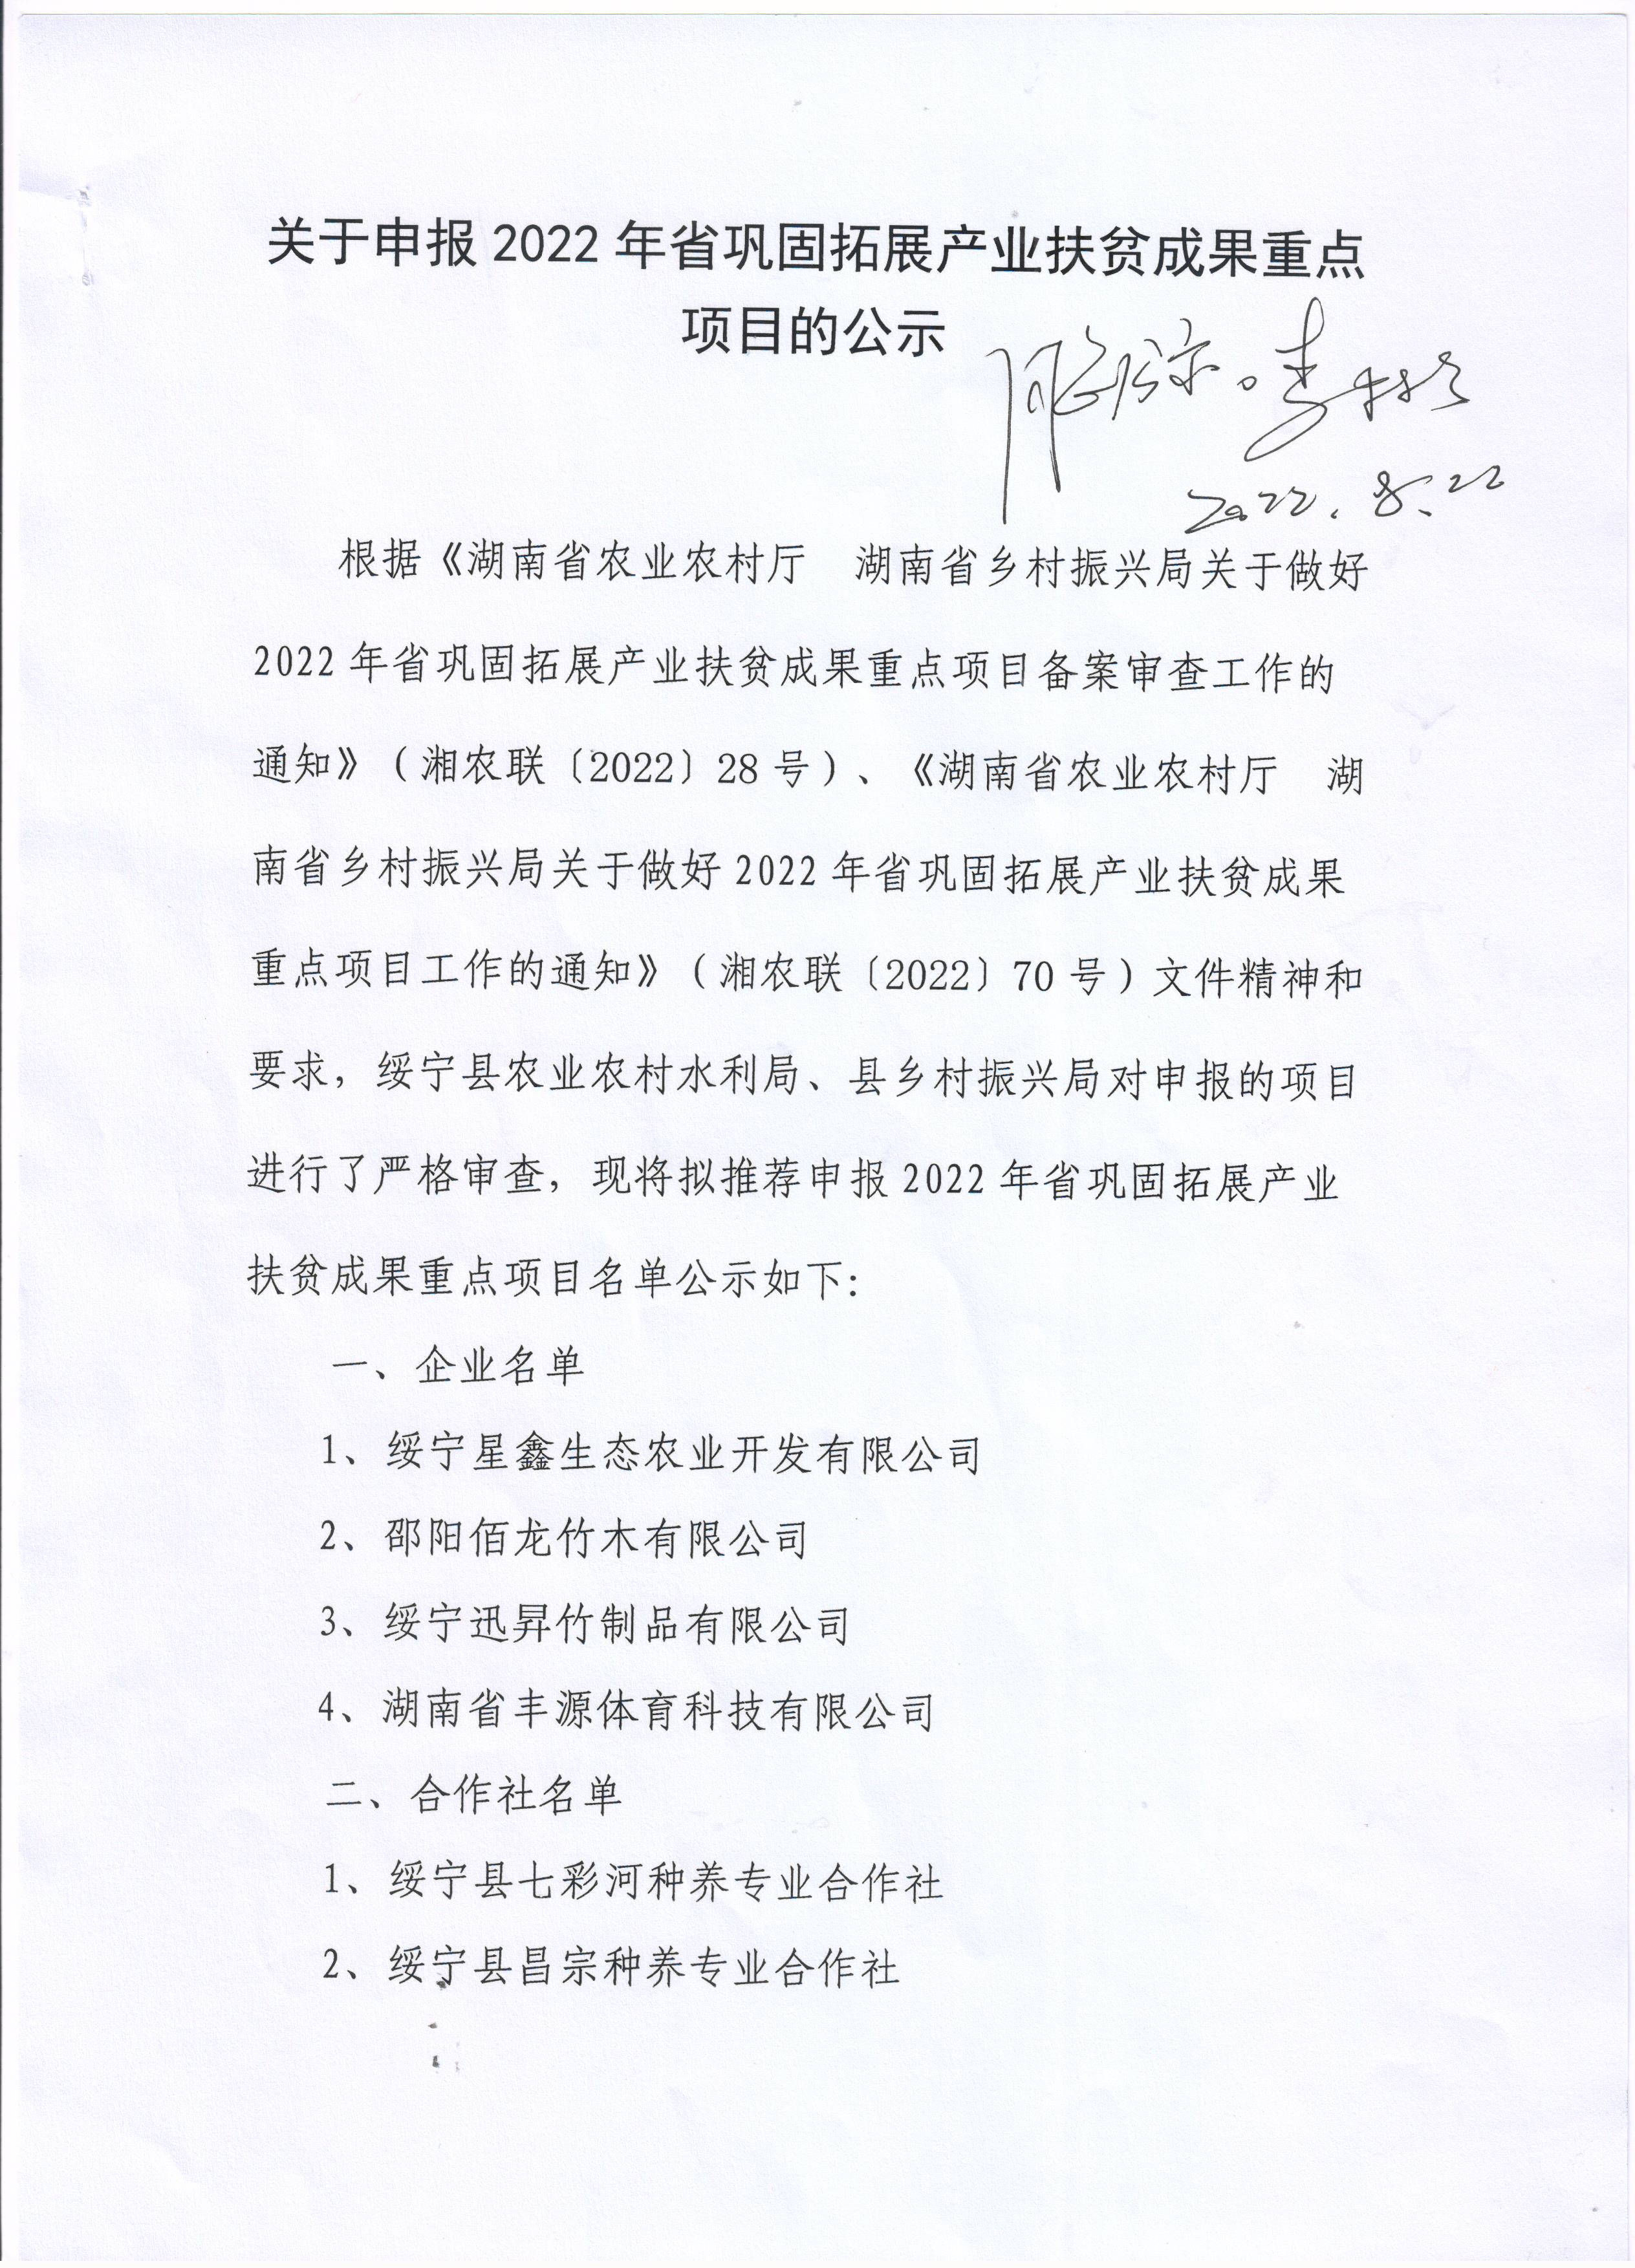 关于申报 2022 年省巩固拓展产业扶贫成果重点
项目的公示
2022.8.22
根据《湖南省农业农村厅　湖南省乡村振兴局关于做好
2022 年省巩固拓展产业扶贫成果重点项目备案审查工作的
通知》（湘农联〔2022〕28 号）、《湖南省农业农村厅　湖
南省乡村振兴局关于做好 2022 年省巩固拓展产业扶贫成果
重点项目工作的通知》（湘农联〔2022〕70 号）文件精神和
要求，绥宁县农业农村水利局、县乡村振兴局对申报的项目
进行了严格审查，现将拟推荐申报 2022 年省巩固拓展产业
扶贫成果重点项目名单公示如下：
一、企业名单
1、绥宁星鑫生态农业开发有限公司
2、邵阳佰龙竹木有限公司
3、绥宁迅昇竹制品有限公司
4、湖南省丰源体育科技有限公司
二、合作社名单
1、绥宁县七彩河种养专业合作社
2、绥宁县昌宗种养专业合作社